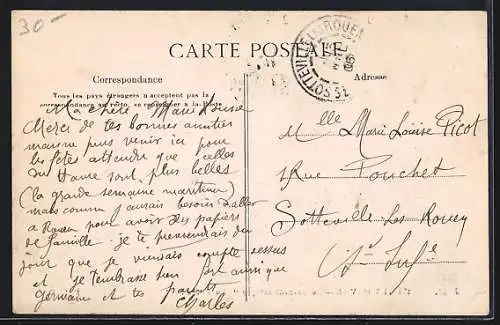 30-
CARTE POSTALE
Correspondance
Tous les pays étrangers n'acceptent pas la
correspondance au recto, se renseigner à la Poste
Adresse
SOTTEVILLE-LES-ROUEN
Ma chère Marie Louise
Merci de tes bonnes amitiés
mais ne puis venir ici pour
les fêtes attendu que celles
du Havre sont plus belles
(la grande semaine maritime)
mais comme j'aurais besoin d'aller
a Rouen pour avoir des papiers
de famille. je te préviendrais du
jour que je viendrais compte dessus
et je t'embrasse bien fort ainsi que
Germaine et tes parents
Charles
Mlle Marie Louise Picot
1 Rue Pouchet
Sotteville-Les-Rouen
Sne Infre